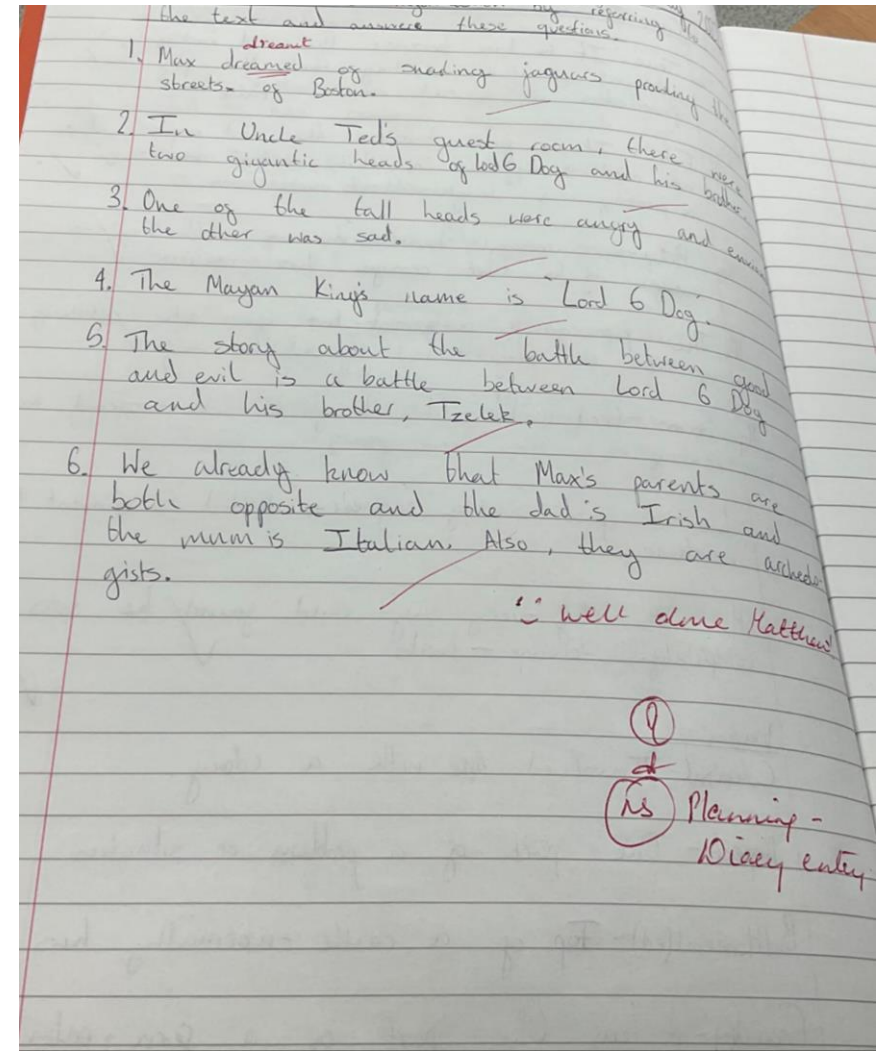 by referring to
the text and answere these questions.
dreamt
1. Max dreamed of snading jaguars prowling the
streets. of Boston.
2. In Uncle Ted's guest room, there were
two gigantic heads of lod 6 Dog and his brother.
3. One of the tall heads were angry and
the other was sad.
4. The Mayan King's name is Lord 6 Dog.
5. The story about the battle between good
and evil is a battle between Lord 6 Dog
and his brother, Tzelek.
6. We already know that Max's parents are
both opposite and the dad's Irish and
the mum is Italian. Also, they are archeolo
gists.
Well done Matthew
is Planning -
Diary entry